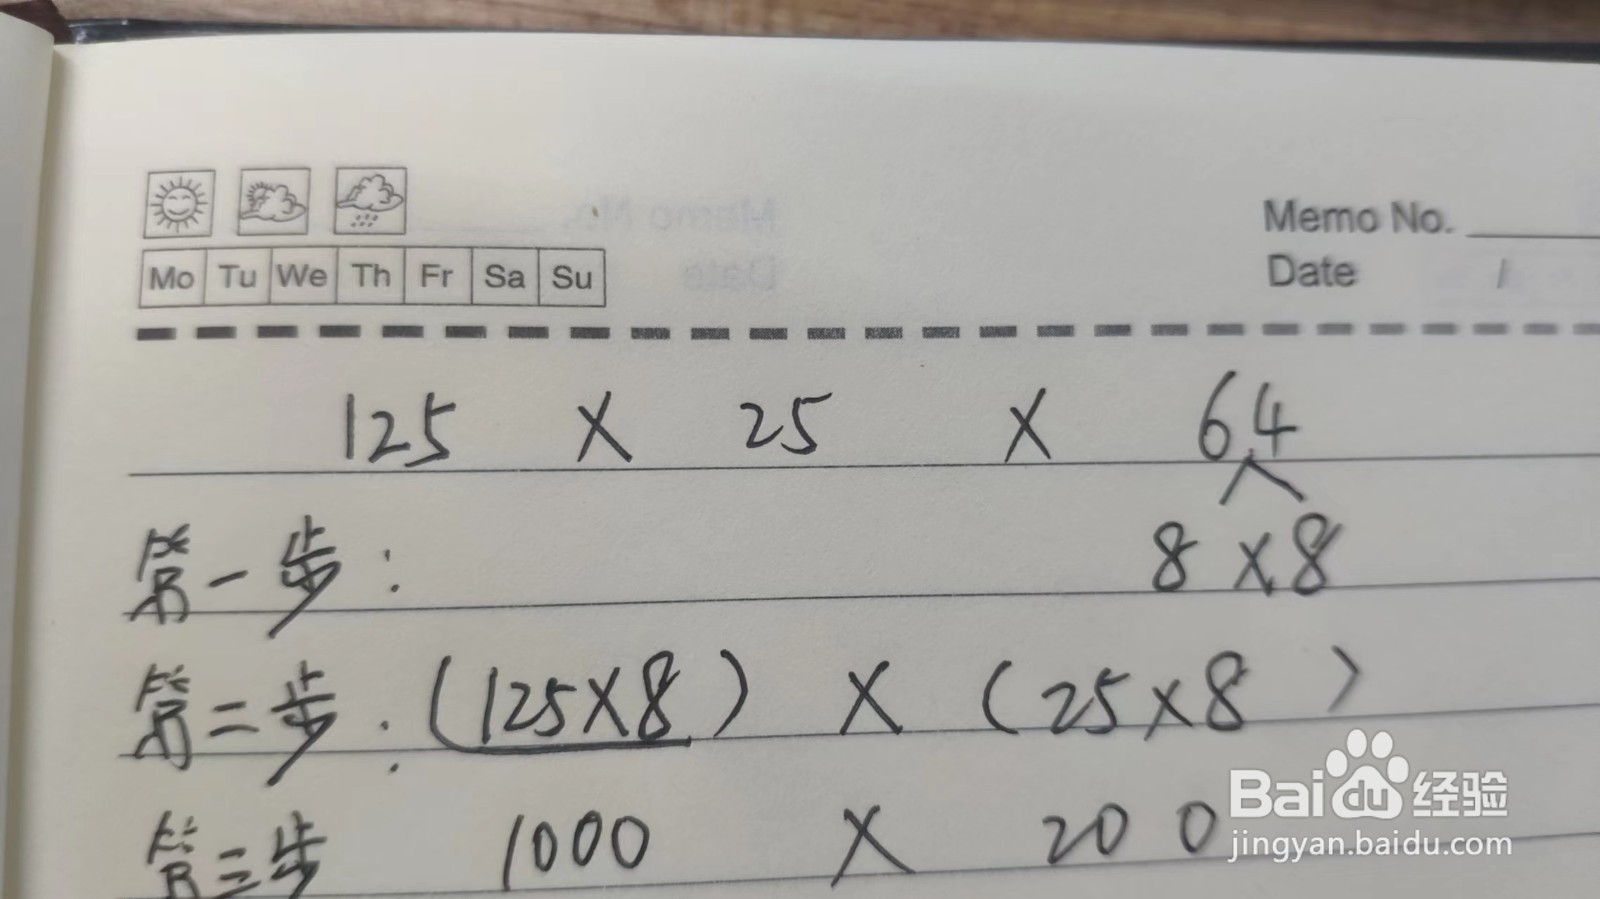 Memo No.
Date /
Mo Tu We Th Fr Sa Su
125 × 25 × 64
第一步: 8 × 8
第二步: (125×8) × (25×8)
第三步 1000 × 200
Baidu经验
jingyan.baidu.com